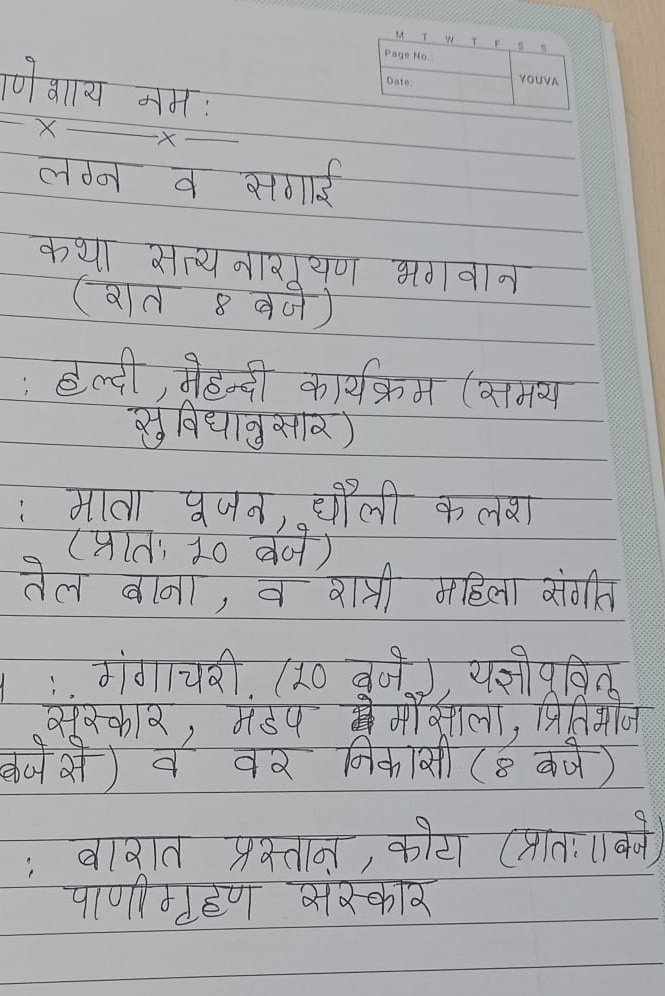 M T W T F S S
Page No.:
Date:
YOUVA
णेशाय नमः
लग्न व सगाई
कथा सत्यनारायण भगवान
(रात 8 बजे)
: हल्दी, मेहन्दी कार्यक्रम (समय
सुविधानुसार)
: माता पूजन, घौली कलश
(प्रातः 10 बजे)
तेल बाना, व रात्री महिला संगीत
: गंगाचरी (10 बजे), यज्ञोपवित
संस्कार, मंडप मौसाला, प्रितिभोज
बजे से) व वर निकासी (8 बजे)
: बारात प्रस्तान, कोटा (प्रातः 11 बजे)
पाणीगृहण संस्कार